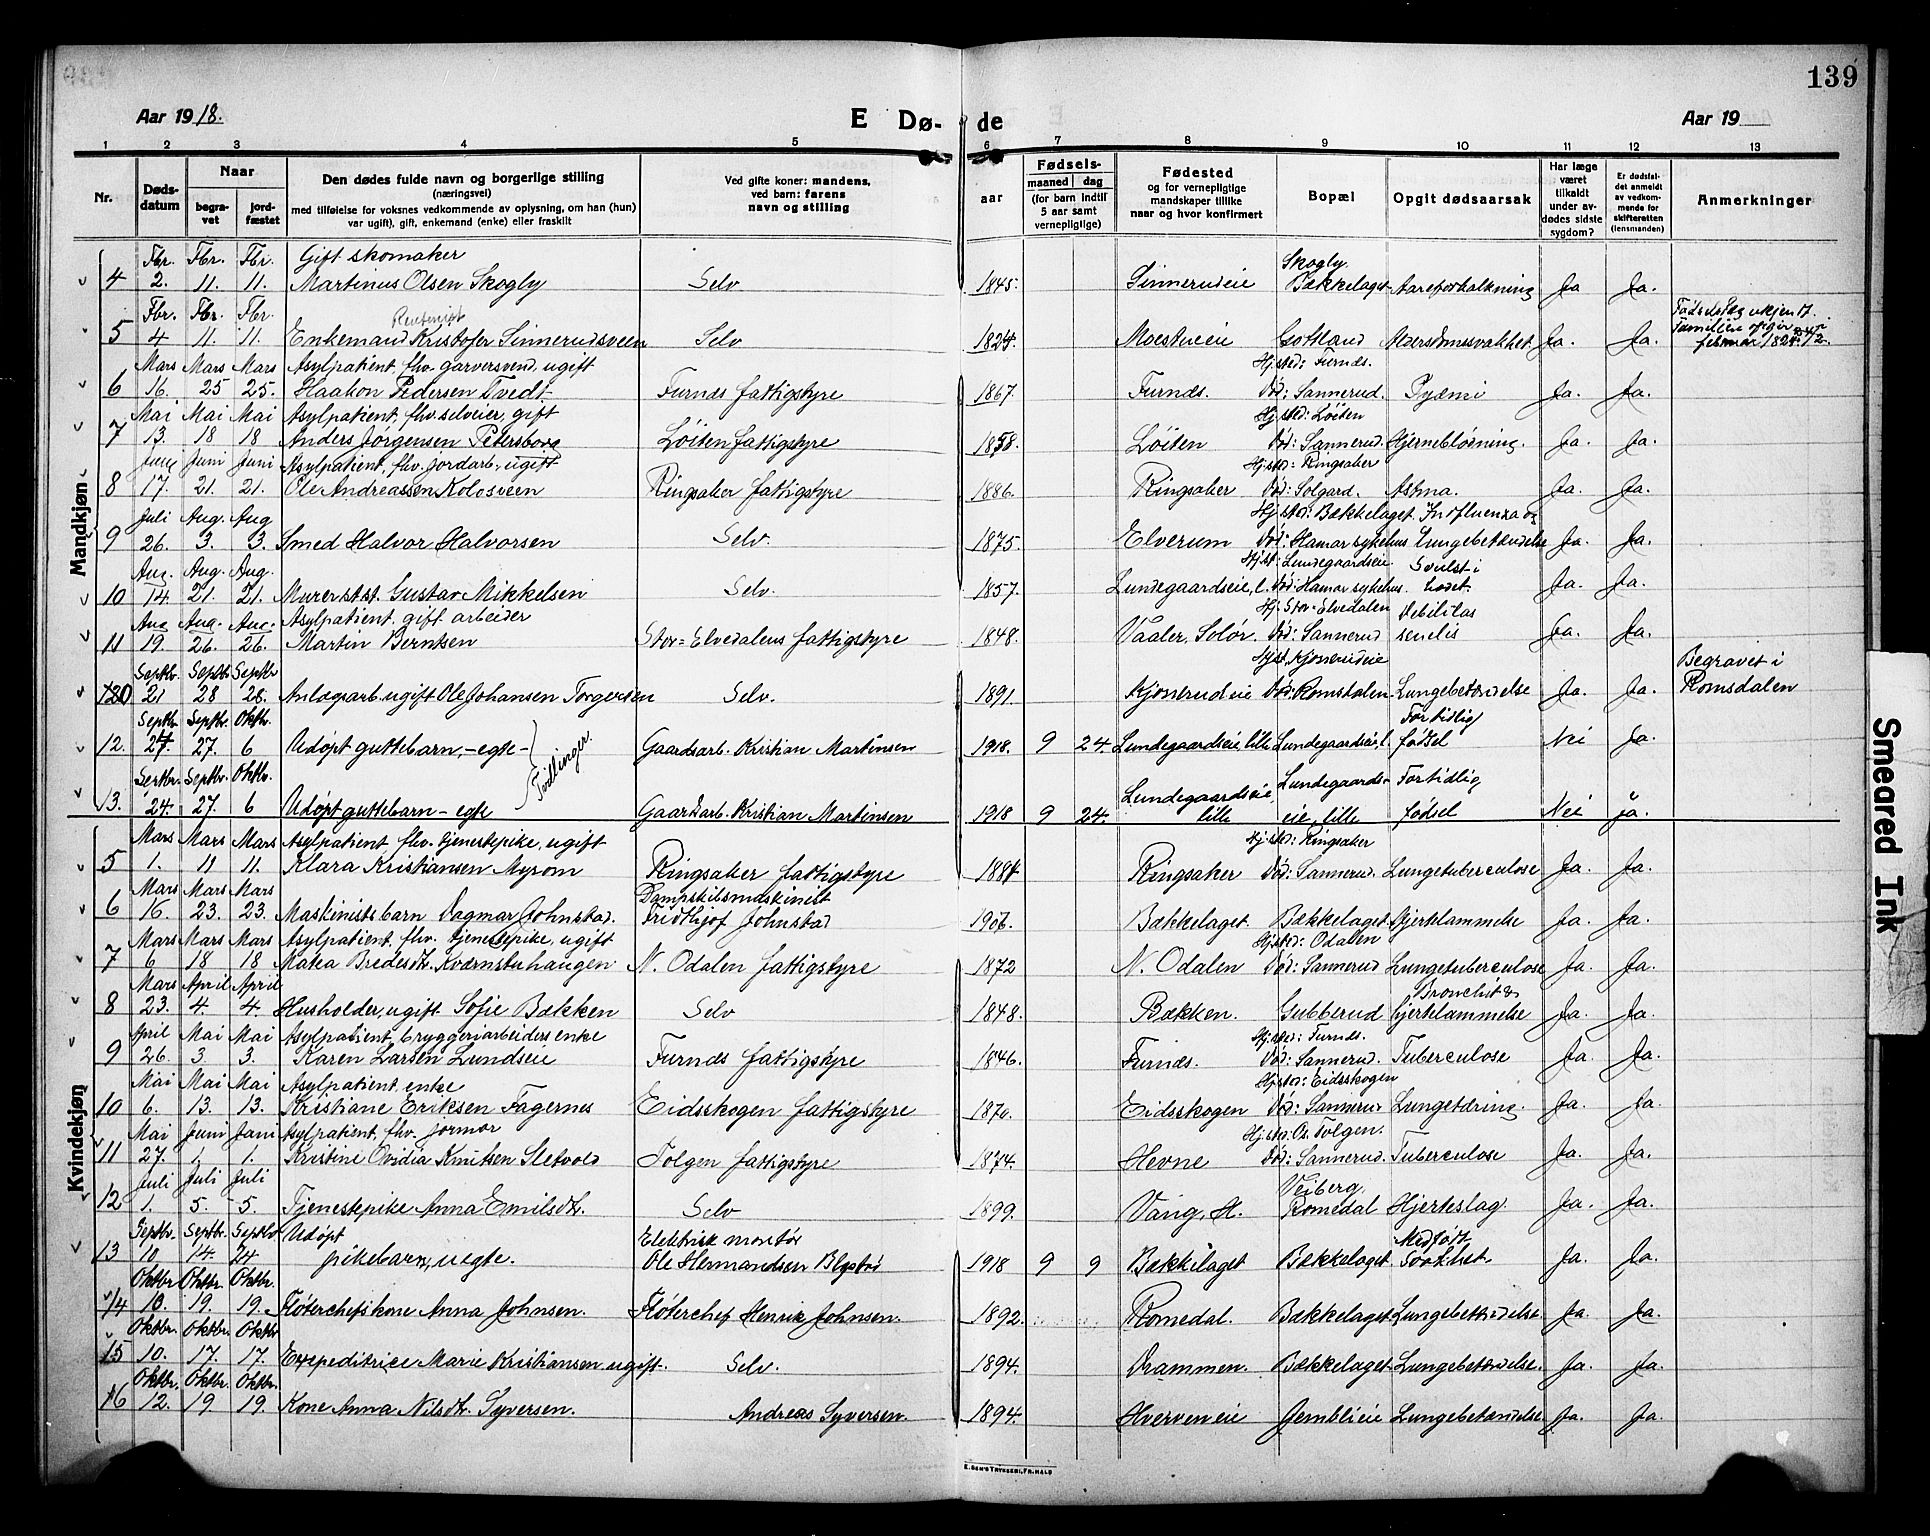 139
Aar 1918.
E Dø- de
Aar 19
1 2 3 4 5 6 7 8 9 10 11 12 13
Nr.
Døds-datum
Naar
begra-vet
jord-fæstet
Den dødes fulde navn og borgerlige stilling
(næringsvei)
med tilføielse for voksnes vedkommende av oplysning, om han (hun)
var ugift), gift, enkemand (enke) eller fraskilt
Ved gifte koner: mandens,
ved barn: farens
navn og stilling
aar
Fødsels-
maaned dag
(for barn indtil
5 aar samt
vernepligtige)
Fødested
og for vernepligtige
mandskaper tillike
naar og hvor konfirmert
Bopæl
Opgit dødsaarsak
Har læge
været
tilkaldt
under av-
dødes sidste
sygdom?
Er dødsfal-
det anmeldt
av vedkom-
mende for
skifteretten
(lensmanden)
Anmerkninger
Mandkjøn
Fbr. Fbr. Fbr. Gift skomaker Skogly
4 2. 11. 11. Martinus Olsen Skogly Selv 1845. Sinnerudeie Bækkelaget Aareforkalkning Ja Ja.
Fbr. Fbr. Fbr. Rentenist
5 4 11. 11. Enkemand Kristofer Sinnerudsveen Selv 1824. Moestueeie Gotland Alersdomssvakhet Ja. Ja. Fødselsdag ukjent. Familien opgir februar 1824
Mars Mars Mars Asylpatient, fhv. garversvend, ugift Hjsted: Furnes.
6 16. 25 25. Haakon Pedersen Tvedt Furnes fattigstyre 1867. Furnes. Død: Sannerud. Pyæmi Ja. Ja.
Mai Mai Mai Asylpatient, fhv. selveier, gift Hjsted: Løiten
7 13. 18 18 Anders Jørgensen Petersborg Løiten fattigstyre 1858. Løiten Død: Sannerud. Hjerneblødning. Ja. Ja.
Juni Juni Juni Asylpatient, fhv. jordarb., ugift Hjsted: Ringsaker
8 17. 21. 21. Ole Andreassen Kolosveen Ringsaker fattigstyre 1886. Ringsaker Død: Solgard. Astma. Ja. Ja.
Juli Aug. Aug Hjsted: Bækkelaget. Influenza og
9 26. 3. 3. Smed Halvor Halvorsen Selv. 1875. Elverum Død: Hamar sykehus Lungebetændelse Ja. Ja.
Aug. Aug. Aug. Hjst: Lundegaardseie Svulst i
10 14. 21. 21. Murer st. Gustav Mikkelsen Selv. 1857. Lundegaardseie, l. Død: Hamar sykehus. hodet. Ja. Ja.
Aug Aug. Aug. Asylpatient, gift arbeider Hj. Stor-Elvedalen Debilitas
11 19. 26. 26. Martin Berntsen Stor=Elvedalens fattigstyre 1848. Vaaler, Solør. Død: Sannerud senilis Ja. Ja.
Septb. Septb. Septbr Hjst. Kjonerudeie Begravet i
21 28 28. Anlægsarb. ugift Ole Johansen Torgersen Selv. 1891. Kjonerudeie Død: Romsdalen Lungebetændelse Ja. Ja. Romsdalen
Septbr. Septbr. Oktbr. Fortidlig
12. 24. 27. 6 Udøpt guttebarn, -egte- Gaardsarb. Kristian Martinsen 1918. 9 24. Lundegaardseie, lille Lundegaardseie, l. fødsel Nei Ja.
Tvillinger.
Septbr. Septbr. Oktbr. Lundegaardseie, Lundegaards- Fortidlig
13. 24. 27. 6 Udøpt guttebarn - egte Gaardsarb. Kristian Martinsen 1918 9 24. lille eie, lille fødsel Nei ja.
Kvindekjøn
Mars Mars Mars Asylpatient fhv. tjenestepike, ugift Hjsted: Ringsaker
5 1. 11 11. Klara Kristiansen Myrom Ringsaker fattigstyre Ringsaker Død: Sannerud. Lungetuberculose Ja. Ja.
Mars Mars Mars Dampskibsmaskinist
6 16. 23. 23. Maskinistsbarn Dagmar Johnstad. Fridthjof Johnstad Bækkelaget. Bækkelaget. Hjertelammelse Ja. Ja.
Mars Mars Mars Asylpatient, fhv. tjenestepike, ugift Hjsted: Odalen
7 6 18 18 Matea Bredesdt. Kværnstuhaugen N. Odalen fattigstyre 1872 N. Odalen Død: Sannerud Lungetuberculose Ja. Ja.
Mars April April Bronchit &
8 23. 4. 4. Husholder, ugift Sofie Bækken Selv 1848. Bækken. Gubberud hjertelammelse Ja. Ja.
April Mai Mai Asylpatient, bryggeriarbeiders enke Hjsted: Furnes.
9 26. 3. 3. Karen Larsen Lundseie Furnes fattigstyre 1846. Furnes. Død: Sannerud. Tuberculose Ja. Ja.
Mai Mai Mai Asylpatient, enke Hjsted: Eidsskogen
10 6. 13. 13. Kristiane Eriksen Fagernes Eidsskogen fattigstyre 1870. Eidsskogen Død: Sannerud Lungetæring. Ja. Ja.
Mai Juni Juni Asylpatient, fhv. jormor Hjsted: Os. Tolgen.
11 27. 1. 1. Kristine Ovidia Knutsen Sletvold Tolgen fattigstyre 1874. Hevne Død: Sannerud. Tuberculose Ja. Ja.
Juli Juli Juli Veiberg,
12 1. 5. 5. Tjenestepike Anna Emilsdt. Selv 1899. Vang, H. Romedal Hjerteslag. Ja. Ja.
Septbr. Septbr Septbr Udøpt Elektrisk montør Medfødt
13 10. 14. 24 pikebarn, uegte. Ole Hermandsen 1918 9 9 Bækkelaget Bækkelaget Svakhet. Ja. Ja.
Oktbr Oktbr. Oktbr.
14 10. 19. 19. Fløterchefs kone Anna Johnsen. Fløterchef Henrik Johnsen. 1892. Romedal. Bækkelaget Lungebetændelse. Ja. Ja.
Oktbr. Oktbr. Oktbr
15 10. 17. 17. Expeditrice Marie Kristiansen ugift. Selv. 1894. Drammen. Bækkelaget. Lungebetændelse. Ja. Ja.
Oktbr. Oktbr. Oktbr.
16 12. 19 19. Kone Anna Nilsdt. Syversen. Andreas Syversen. 1894. Hverveneie Jemblieie Lungebetændelse. Ja. Ja.
E. SEM'S TRYKKERI, FR.HALD
Smeared Ink